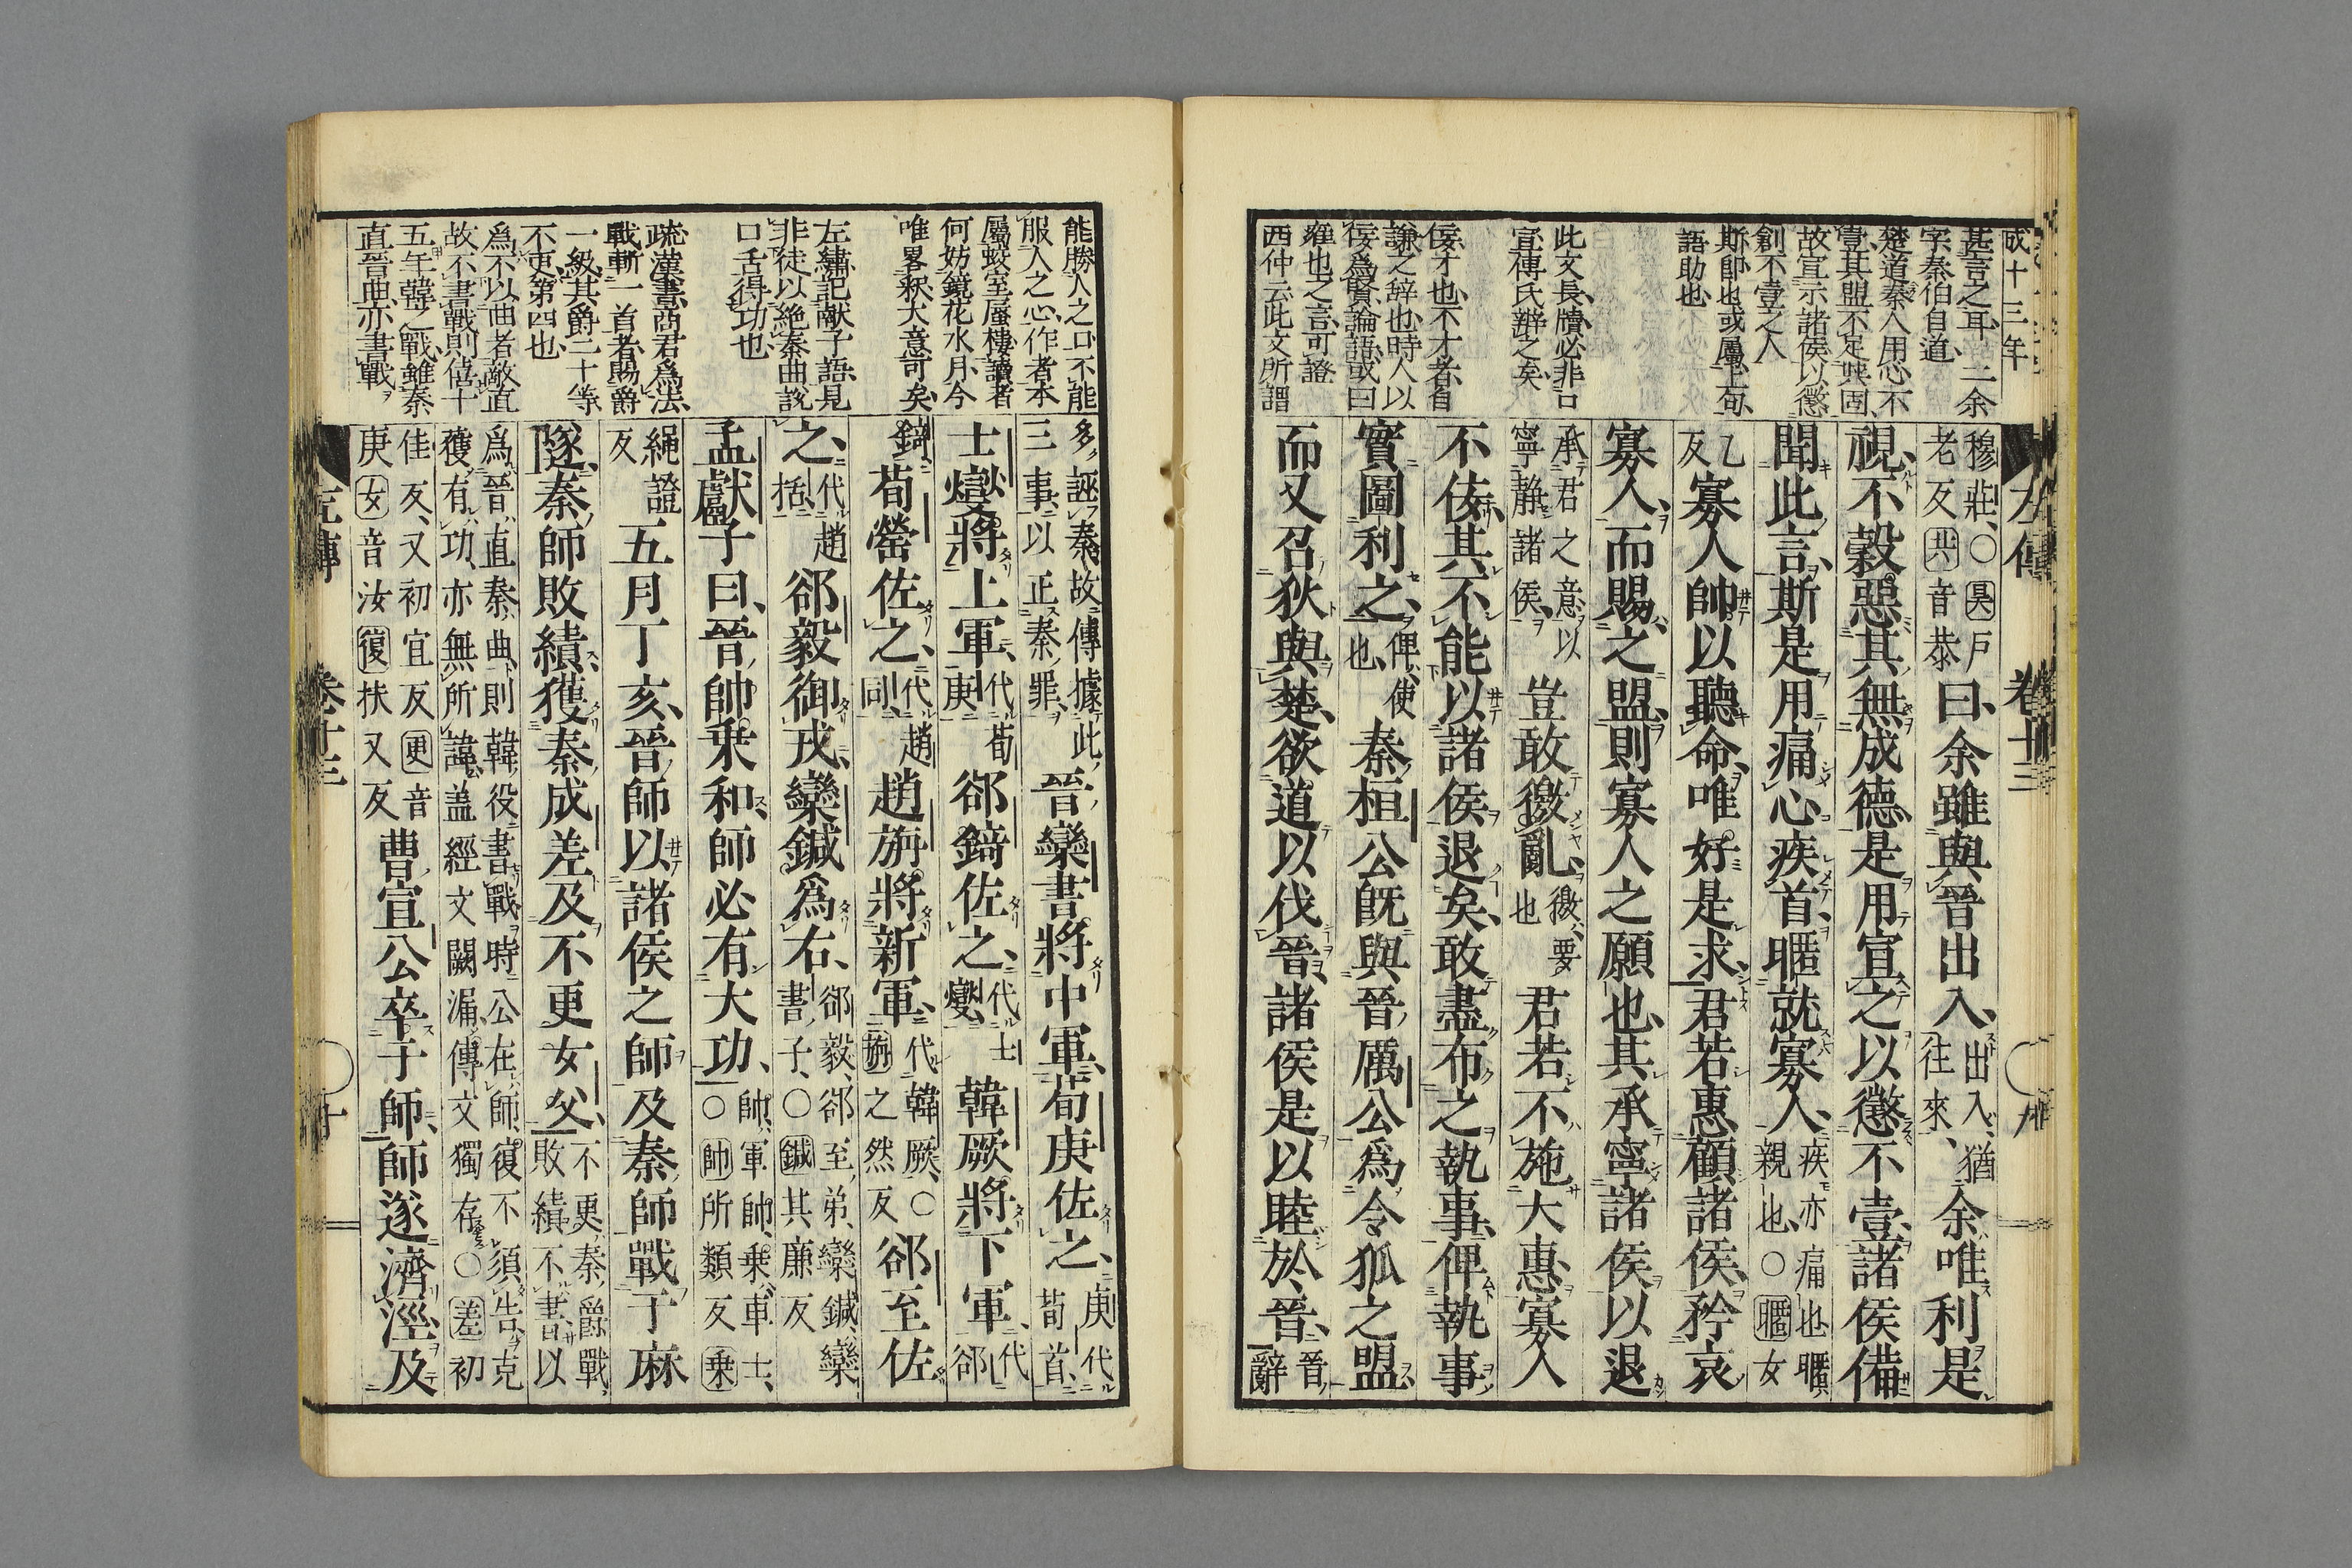 成十三年
甚言之耳、二余
字、秦伯自道
楚道秦人用心不
壹、其盟不足與固、
故宣示諸侯以懲
創不壹之人
斯卽也或屬上句、
語助也
此文長牘必非口
宣、傳氏辯之矣
佞才也、不才者自
謙之辭也、時人以
佞爲賢、論語或曰
雍也之言、可證
西仲云此文所謂
左傳 卷十三 九
穆莊、○昊戶老反共音恭曰、余雖與晉出入、出入、猶往來、余唯利是
視、不穀惡其無成德、是用宣之、以懲不壹、諸侯備
聞此言、斯是用痛心疾首、暱就寡人、疾亦痛也、暱親也、○暱女
乙反寡人帥以聽命、唯好是求、君若惠顧諸侯、矜哀
寡人、而賜之盟、則寡人之願也、其承寧諸侯以退
承君之意以寧静諸侯、豈敢徼亂、徼、要也君若不施大惠、寡人
不佞、其不能以諸侯退矣、敢盡布之執事、俾執事
實圖利之、俾、使也、秦桓公旣與晉厲公爲令狐之盟
而又召狄與楚、欲道以伐晉、諸侯是以睦於晉、晉辭
能勝人之口不能
服人之心、作者本
屬蛟室蜃樓、讀者
何妨鏡花水月今
唯畧釈大意可矣
左繡記献子語見
非徒以絶秦曲說
口舌得功也
疏漢書、商君爲法、
戰斬一首者賜爵
一級、其爵二十等
不更第四也
爲不以曲者敵直
故不書戰則僖十
五年韓之戰雖秦
直晉曲亦書戰
多誣秦、故傳據此三事、以正秦罪、晉欒書將中軍、荀庚佐之、庚代荀首、
士燮將上軍、代荀庚郤錡佐之、代士燮、韓厥將下軍、代郤
錡、荀罃佐之、代趙同、趙旃將新軍、代韓厥、○旃之然反郤至佐
之、代趙括、郤毅御戎、欒鍼爲右、郤毅、郤至弟、欒鍼、欒書子、○鍼其廉反
孟獻子曰、晉帥乘和、師必有大功、帥、軍帥、乘、車士、○帥所類反乘
繩證反五月丁亥、晉師以諸侯之師、及秦師戰于麻
隧、秦師敗績、獲秦成差及不更女父、不更、秦爵、戰敗績不書、以
爲晉直秦曲、則韓役書戰、時公在師、復不須告、克獲有功、亦無所諱、蓋經文闕漏、傳文獨存、○差初
佳反、又初宜反更音庚女音汝復扶又反曹宣公卒于師、師遂濟涇、及
左傳 卷十三 十